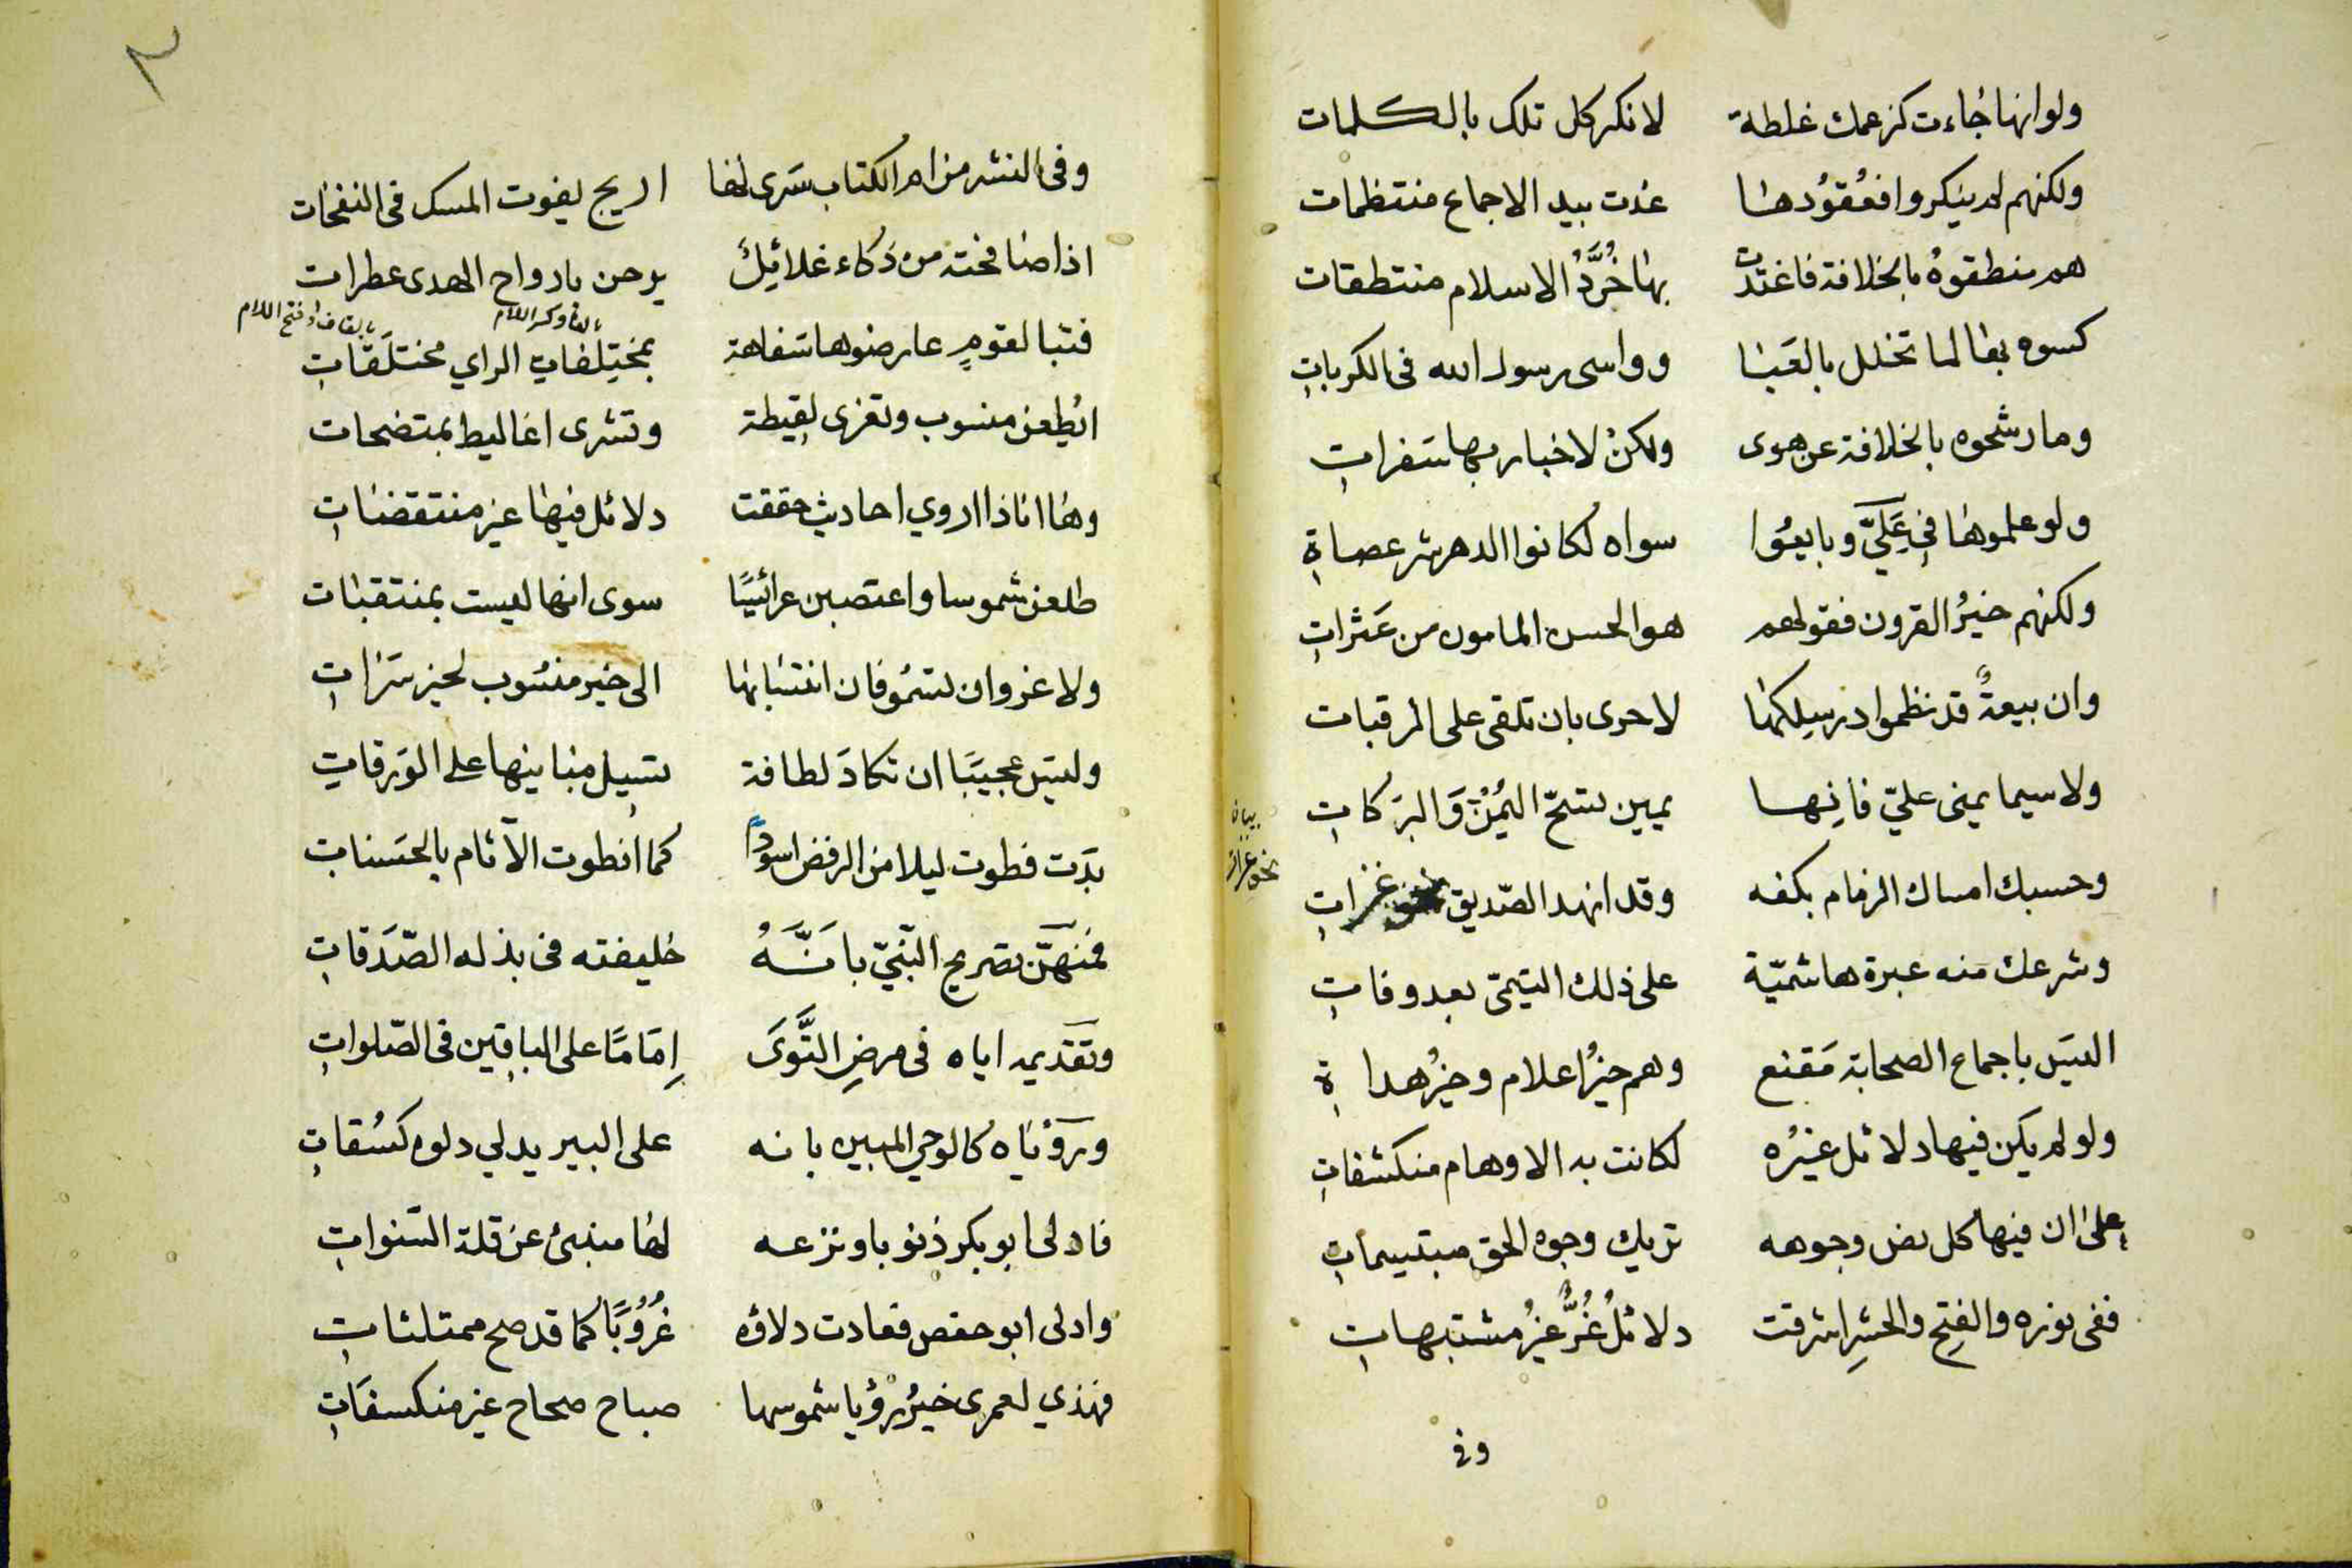 ولو انها جاءت كزعمك غلطة لانكر كل تلك بالكلمات
ولكنهم لم ينكروا فعُقُودُها غدت بيد الاجماع منتظمات
هم منطقوهُ بالخلافة فاغتدت بها خُرَّدُ الاسلام منتطقات
كسوه بها لما تخلل بالعَبَا وواسى رسول الله فى الكرباتِ
وما رشحوه بالخلافة عن هوى ولكنْ لاخبار بها سَفراتِ
ولو علموها فى عَلَيّ وبايعُوا سواه لكانوا الدهر شر عصاةِ
ولكنهم خيرُ القرون فقولهم هو الحسن المامون من عَثراتِ
وان بيعةٌ قد نظموا در سِلكها لاحرى بان تلقى على الرقبات
ولا سيما يمنى عليّ فانِها يمين تسُحّ اليُمْنَ وَالبرَكاتِ
وحسبك امساك الزمام بكفه وقد انهد الصّديق غزاتِ
وشرعك منه عبرة هاشميّة على ذلك التيمىّ بعد وفاتِ
اليسَ باجماع الصحابة مَقنع وهم خيرُ اعلام وخيرُ هداةِ
ولو لم يكن فيها دلائل غيْرُه لكانت به الاوهام منكشفاتِ
على ان فيها كل نص وجوهه تريك وجوه الحق مبتسِماتِ
ففى نوره والفتح والحشرِ اشرقت دلائلُ غُرٌّ غيرُ مشتبهاتِ
وفى
٢
وفى النشر من ام الكتاب سَرى لها اريج يفوت المسك فى النفحات
اذا صافحته من ذكاء غلائلٌ يرحن بارواح الهدى عطرات
بالفا وكسر اللام
بالقاف وفتح اللام
فتبا لقومٍ عارضوها سَفاهة بمختلِفاتِ الراي مختلَقاتِ
ايُطعن منسوب وتعزى لقيطة وتشرى اغاليط بمتضحات
وها انا ذا اروي احاديث حققت دلائل فيها غير منتقضاتِ
طلعن شموسا واعتصبن عرائسًا سوى انها ليست بمنتقبات
ولا غرو ان تسمُو فان انتسابها الى خير منسُوب لخير سَرَاتِ
وليسَ عجيبًا ان تكادَ لطافة تسيل مبانيها على الوَرقاتِ
بدَت فطوت ليلا من الرفض اسودًا كما انطوت الآثام بالحسَناتِ
فمنهنّ تصريح النّبيّ بانَّهُ خليفته فى بذله الصّدَقاتِ
وتقديمه اياه فى مرضِ التَّوَى اِمَامًا على الباقين فى الصّلواتِ
ورؤياه كالوحي المبين بانه على البير يدلي دلوه كسُقاتِ
فادلى ابو بكر ذنوبا ونزعه لها منبئ عن قلة السّنواتِ
وادلى ابو حفص فعادت دلاؤه غُرُوبًا كما قد صح ممتلئاتِ
فهذي لعمرى خيرُ رؤيا شموسها صباح صحاح غير منكسفاتِ